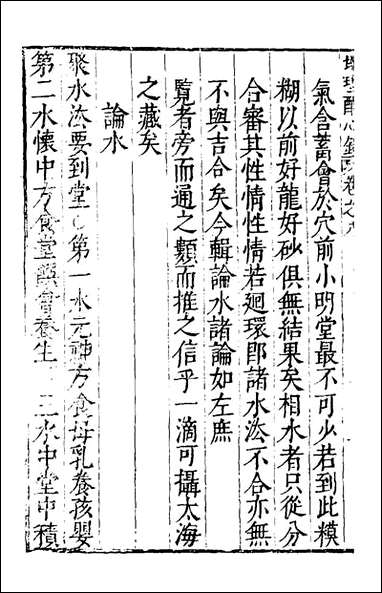 堪理醒心鏡卷之八
氣含蓄會於穴前小明堂最不可少若到此模
糊以前好龍好砂俱無結果矣相水者只從分
合審其性情性情若廻環即諸水法不合亦無
不與吉合矣今輯論水諸論如左庶
覽者旁而通之類而推之信乎一滴可攝太海
之藏矣
論水
聚水法要到堂第一水元神方食母乳養孩嬰
第二水懷中方食堂與會養生三水中堂中積